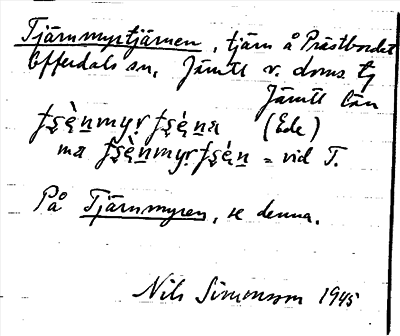 Tjärnmyrtjärnen, tjärn å Prästbordet
Offerdals sn, Jämtl v. doms tg
Jämtl län
(Ede)
ma = vid T.
På Tjärnmyren, se denna.
Nils Simonsson 1945